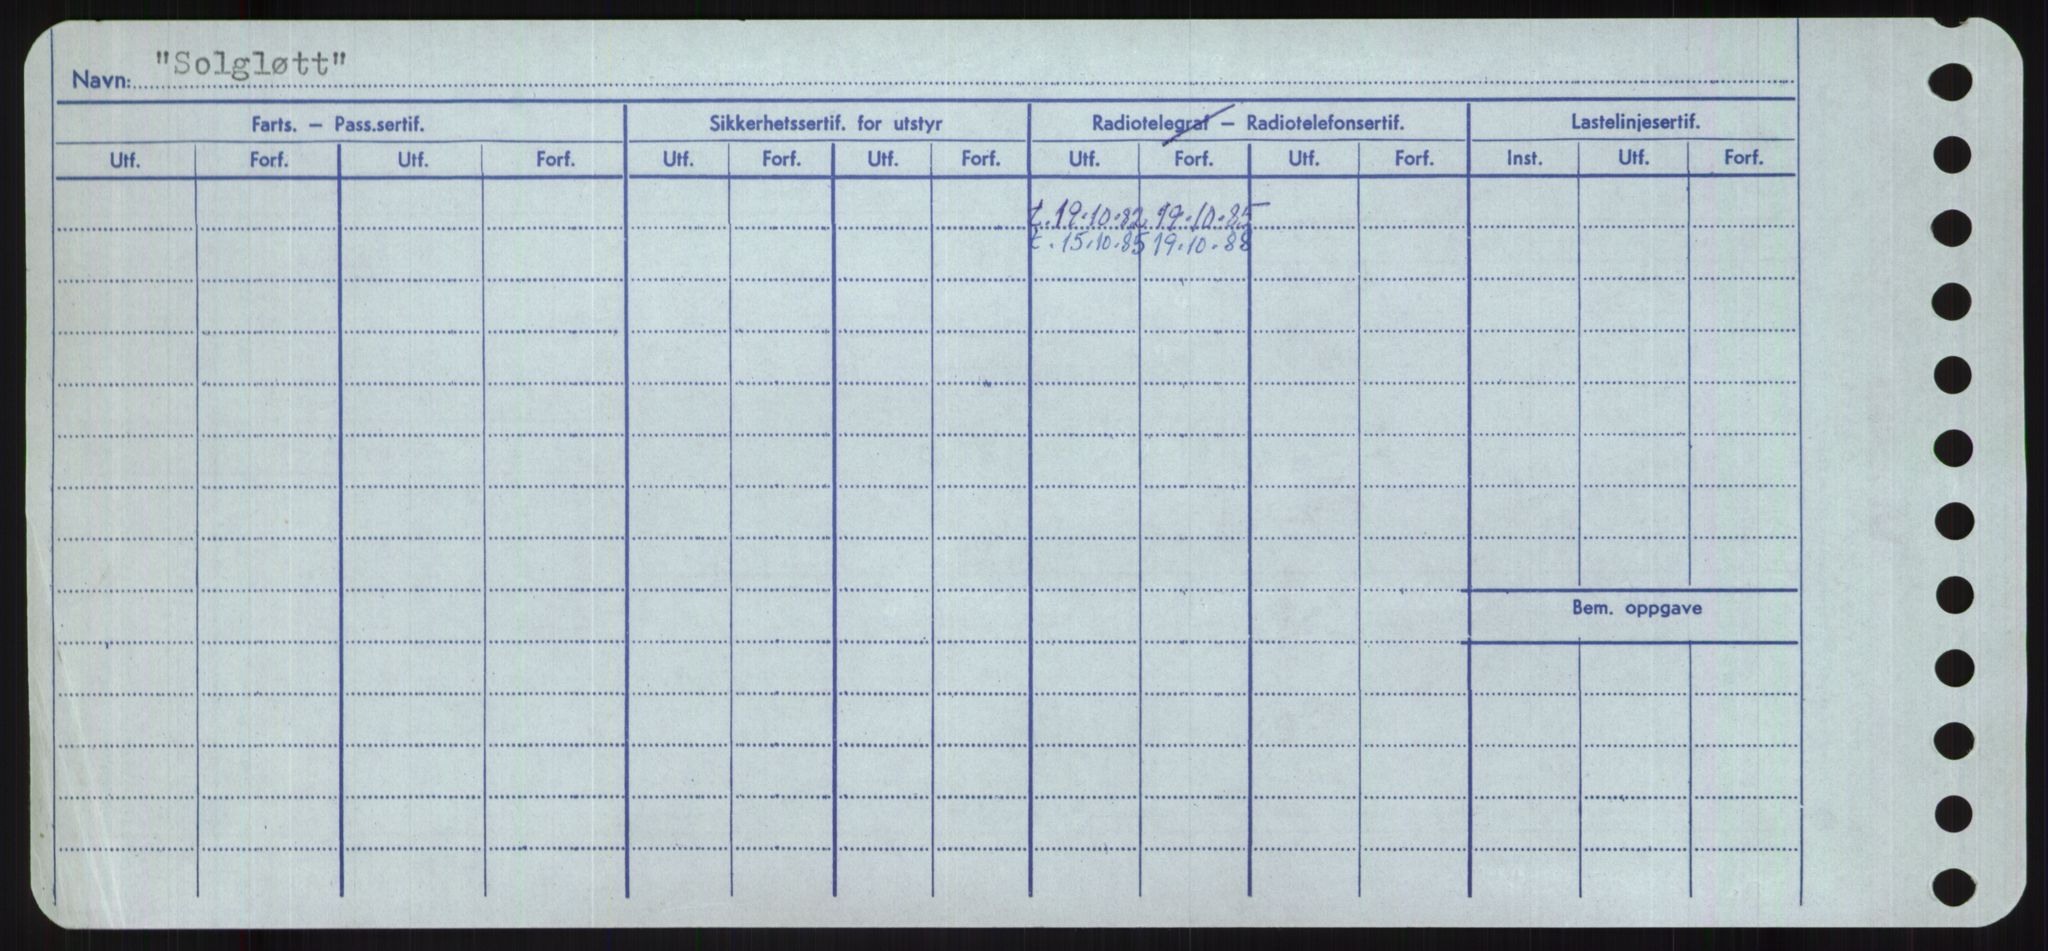 Navn: "Solgløtt"
Farts. — Pass.sertif. Sikkerhetssertif. for utstyr Radiotelegraf — Radiotelefonsertif. Lastelinjesertif.
Utf. Forf. Utf. Forf. Utf. Forf. Utf. Forf. Utf. Forf. Utf. Forf. Inst. Utf. Forf.
t. 19.10.82 19.10.85
t. 15.10.85 19.10.88
Bem. oppgave